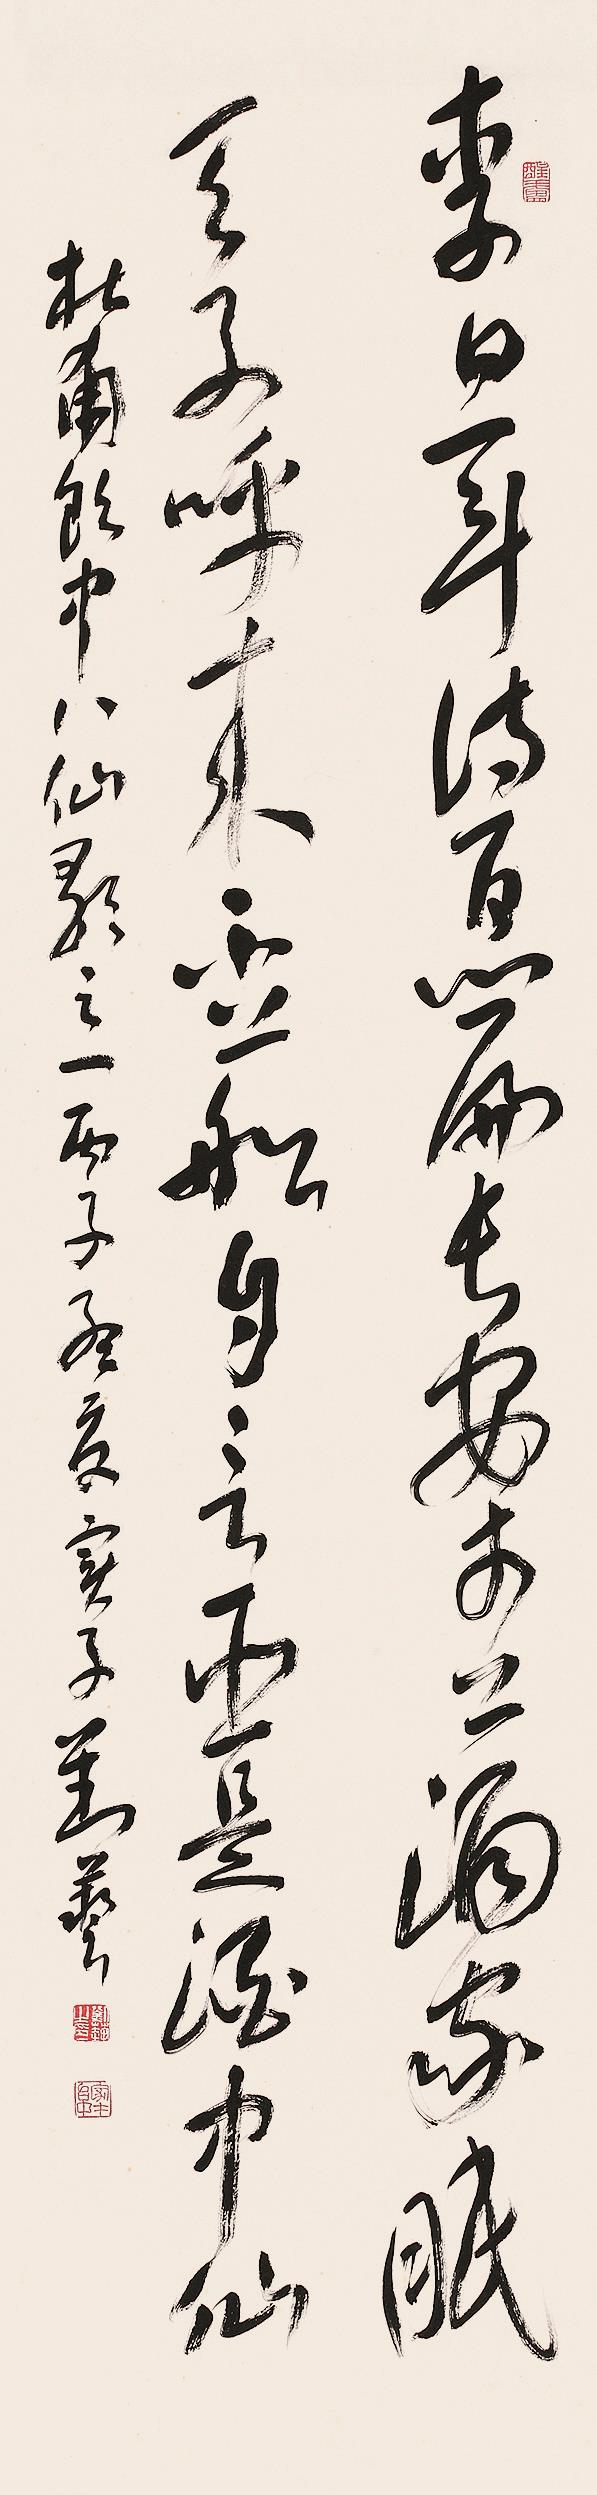 李白一斗詩百篇長安市上酒家眠
天子呼來不上船自言臣是酒中仙
杜甫飲中八仙歌之一丙子孟夏寅子劉藝